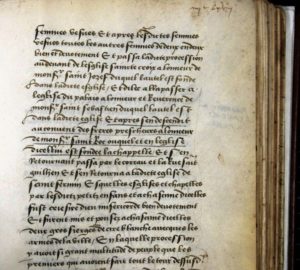 femmes vefues Et apres lesdites femmes
vefues toutes les autres femmes deux en deux
bien et deuotement Et passa ladite procession
au deuant de leglise sainct croix a lonneur de
monsr Sainct Jozef duquel lautel est fonde
en ladite eglise Et dilec alla passer a
leglise du palais a lonneur et reuerence de
monsr sainct sebastien duquel lautel est
dans ladite eglise Et apres sen descendit
au couuent des freres prescheurs a lonneur
de monsr sainct Roc ouquel et en leglise
dicelluy est fondee la chappelle Et sen
retournant passa par le correau et la Rue
guilhem et sen retourna a ladite eglise de
sainct fermin Et fquelles esglises et chappelles
par lesdits petitz enfans et a chascune dicelles
fust crie sire dieu misericorde bien deuotement
Et furent mis et posez a chascune dicelles
deux gros sierges de cire blanche auecques les
armes de la ville Et en laquelle procession
y auoit si grant multitude de peuple que les
premiers qui auoient fait tout le tour dessusd